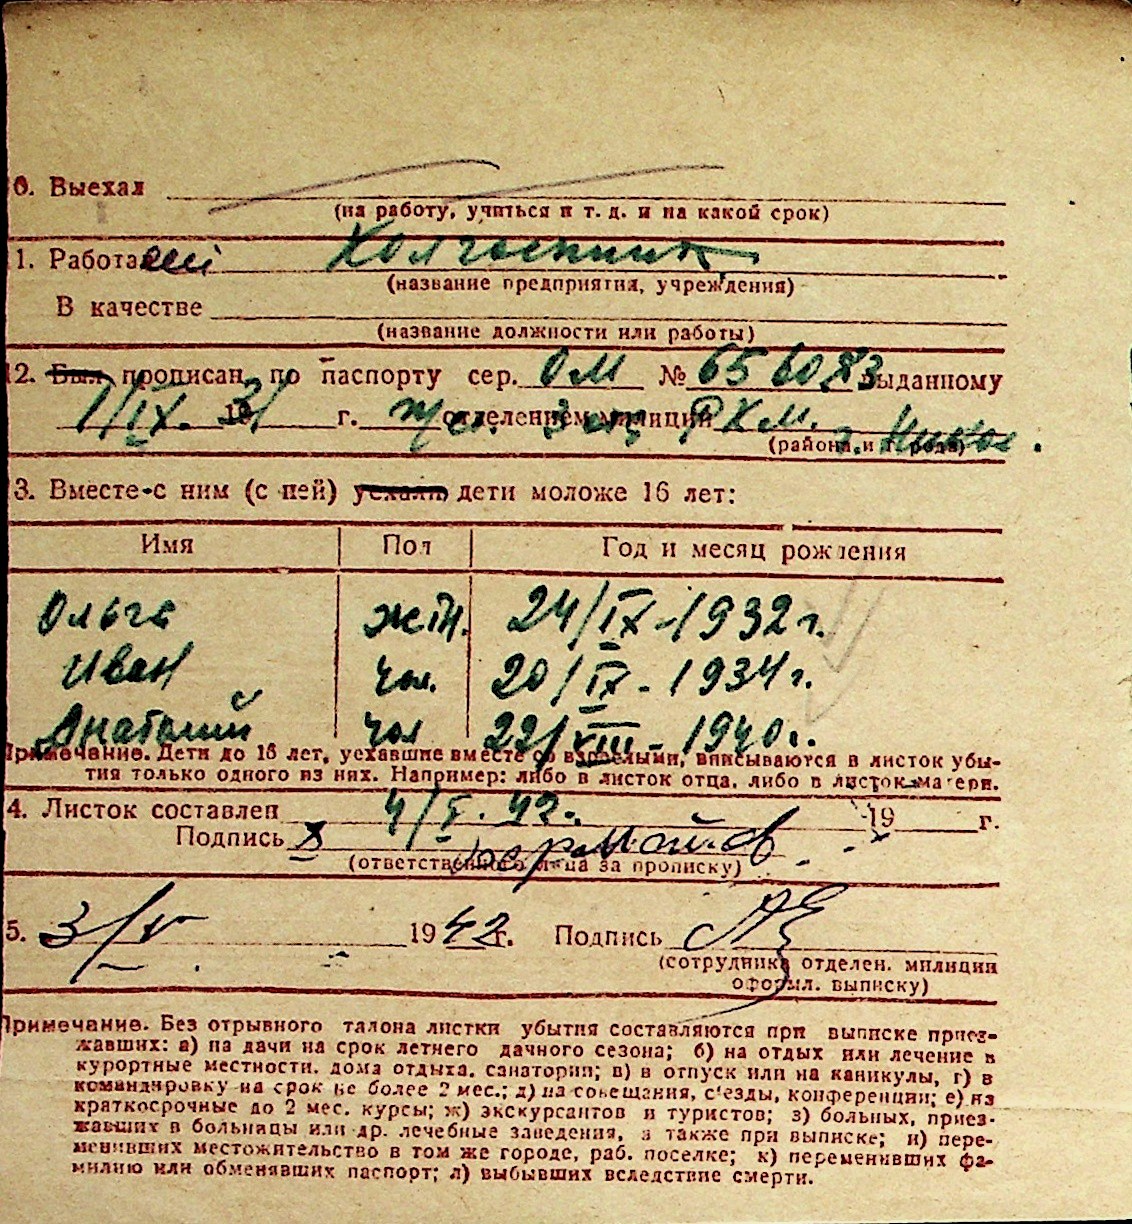 0. Выехал
(на работу, учиться и т. д. и на какой срок)
1. Работа Колгоспник
(название предприятия, учреждения)
В качестве
(название должности или работы)
12. Был прописан по паспорту сер. ОМ № 656083 выданному
1/IX. 19 г. отделением милиции РКМ.
(района и города)
3. Вместе с ним (с ней) уехали дети моложе 16 лет:
Имя Пол Год и месяц рождения
Ольга жін. 24/IX-1932 г.
Иван чол. 20/IX-1934 г.
Анатолий чол 22/XIII-1940 г.
Примечание. Дети до 16 лет, уехавшие вместе со взрослыми, вписываются в листок убы-
тия только одного из них. Например: либо в листок отца, либо в листок матери.
4. Листок составлен 4/V. 42. 19 г.
Подпись
(ответственного лица за прописку)
5. 3/V 1942 г. Подпись
(сотрудника отделен. милиции
оформл. выписку)
Примечание. Без отрывного талона листки убытия составляются при выписке приез-
жавших: а) на дачи на срок летнего дачного сезона; б) на отдых или лечение в
курортные местности, дома отдыха, санатории; в) в отпуск или на каникулы, г) в
командировку на срок не более 2 мес.; д) на совещания, съезды, конференции; е) на
краткосрочные до 2 мес. курсы; ж) экскурсантов и туристов; з) больных, приез-
жавших в больницы или др. лечебные заведения, а также при выписке; и) пере-
менивших местожительство в том же городе, раб. поселке; к) переменивших фа-
милию или обменявших паспорт; л) выбывших вследствие смерти.